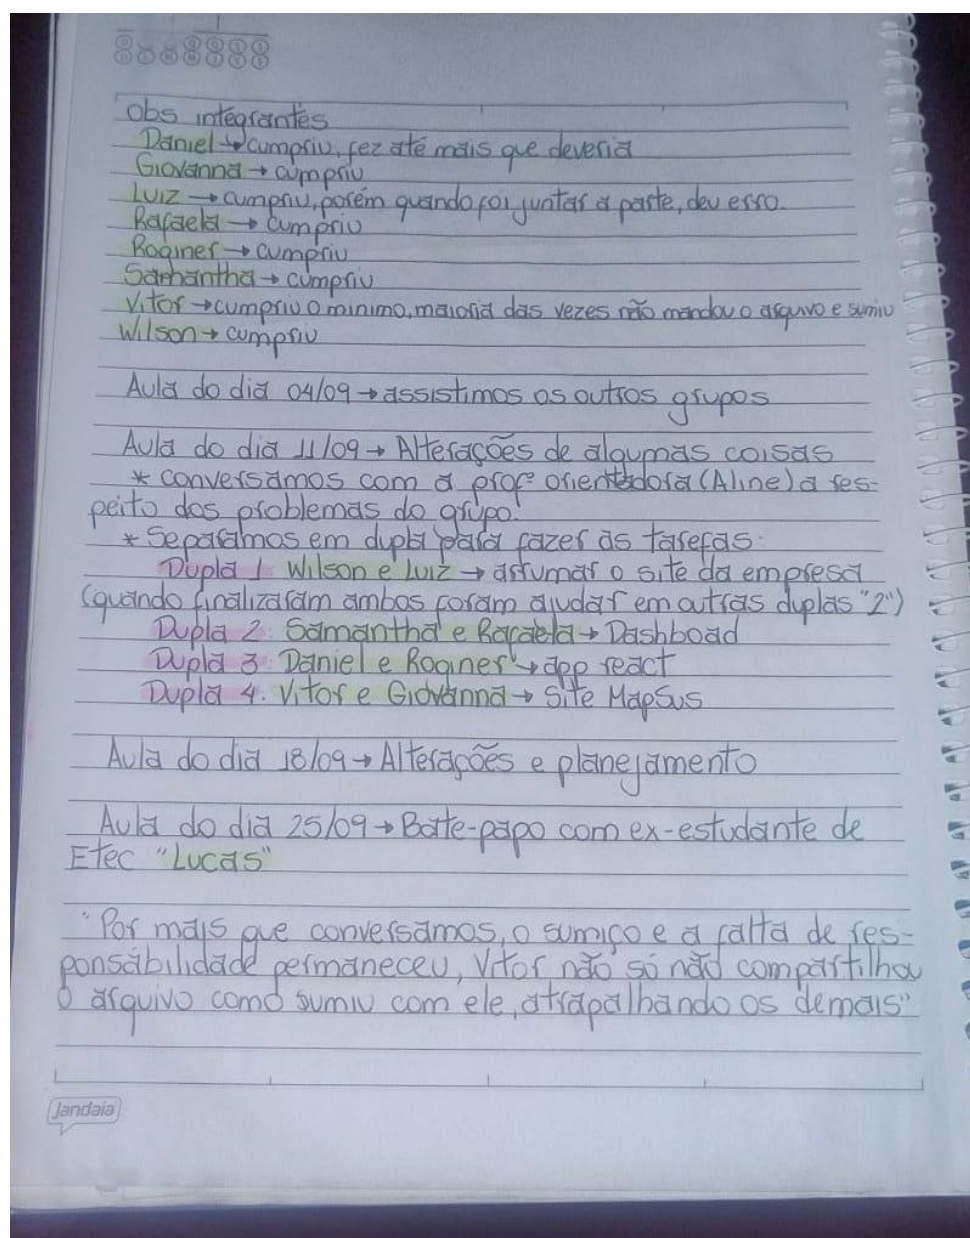 obs integrantes
Daniel → cumpriu, fez até mais que deveria
Giovanna → cumpriu
Luiz → cumpriu, porém quando foi juntar a parte, deu erro.
Rafaela → cumpriu
Roginer → cumpriu
Samantha → cumpriu
Vitor → cumpriu o minimo, maioria das vezes não mandou o arquivo e sumiu
Wilson → cumpriu
Aula do dia 04/09 → assistimos os outros grupos
Aula do dia 11/09 → Alterações de algumas coisas
* conversamos com a profª orientadora (Aline) a res-
peito dos problemas do grupo.
* Separamos em dupla para fazer as tarefas:
Dupla 1 Wilson e Luiz → arrumar o site da empresa
(quando finalizaram ambos foram ajudar em outras duplas "2")
Dupla 2: Samantha e Rafaela → Dashboad
Dupla 3: Daniel e Roginer → app react
Dupla 4: Vitor e Giovanna → Site MapSus
Aula do dia 18/09 → Alterações e planejamento
Aula do dia 25/09 → Bate-papo com ex-estudante de
Etec "Lucas"
"Por mais que conversamos, o sumiço e a falta de res-
ponsabilidade permaneceu, Vitor não só não compartilhou
o arquivo como sumiu com ele, atrapalhando os demais"
Jandaia